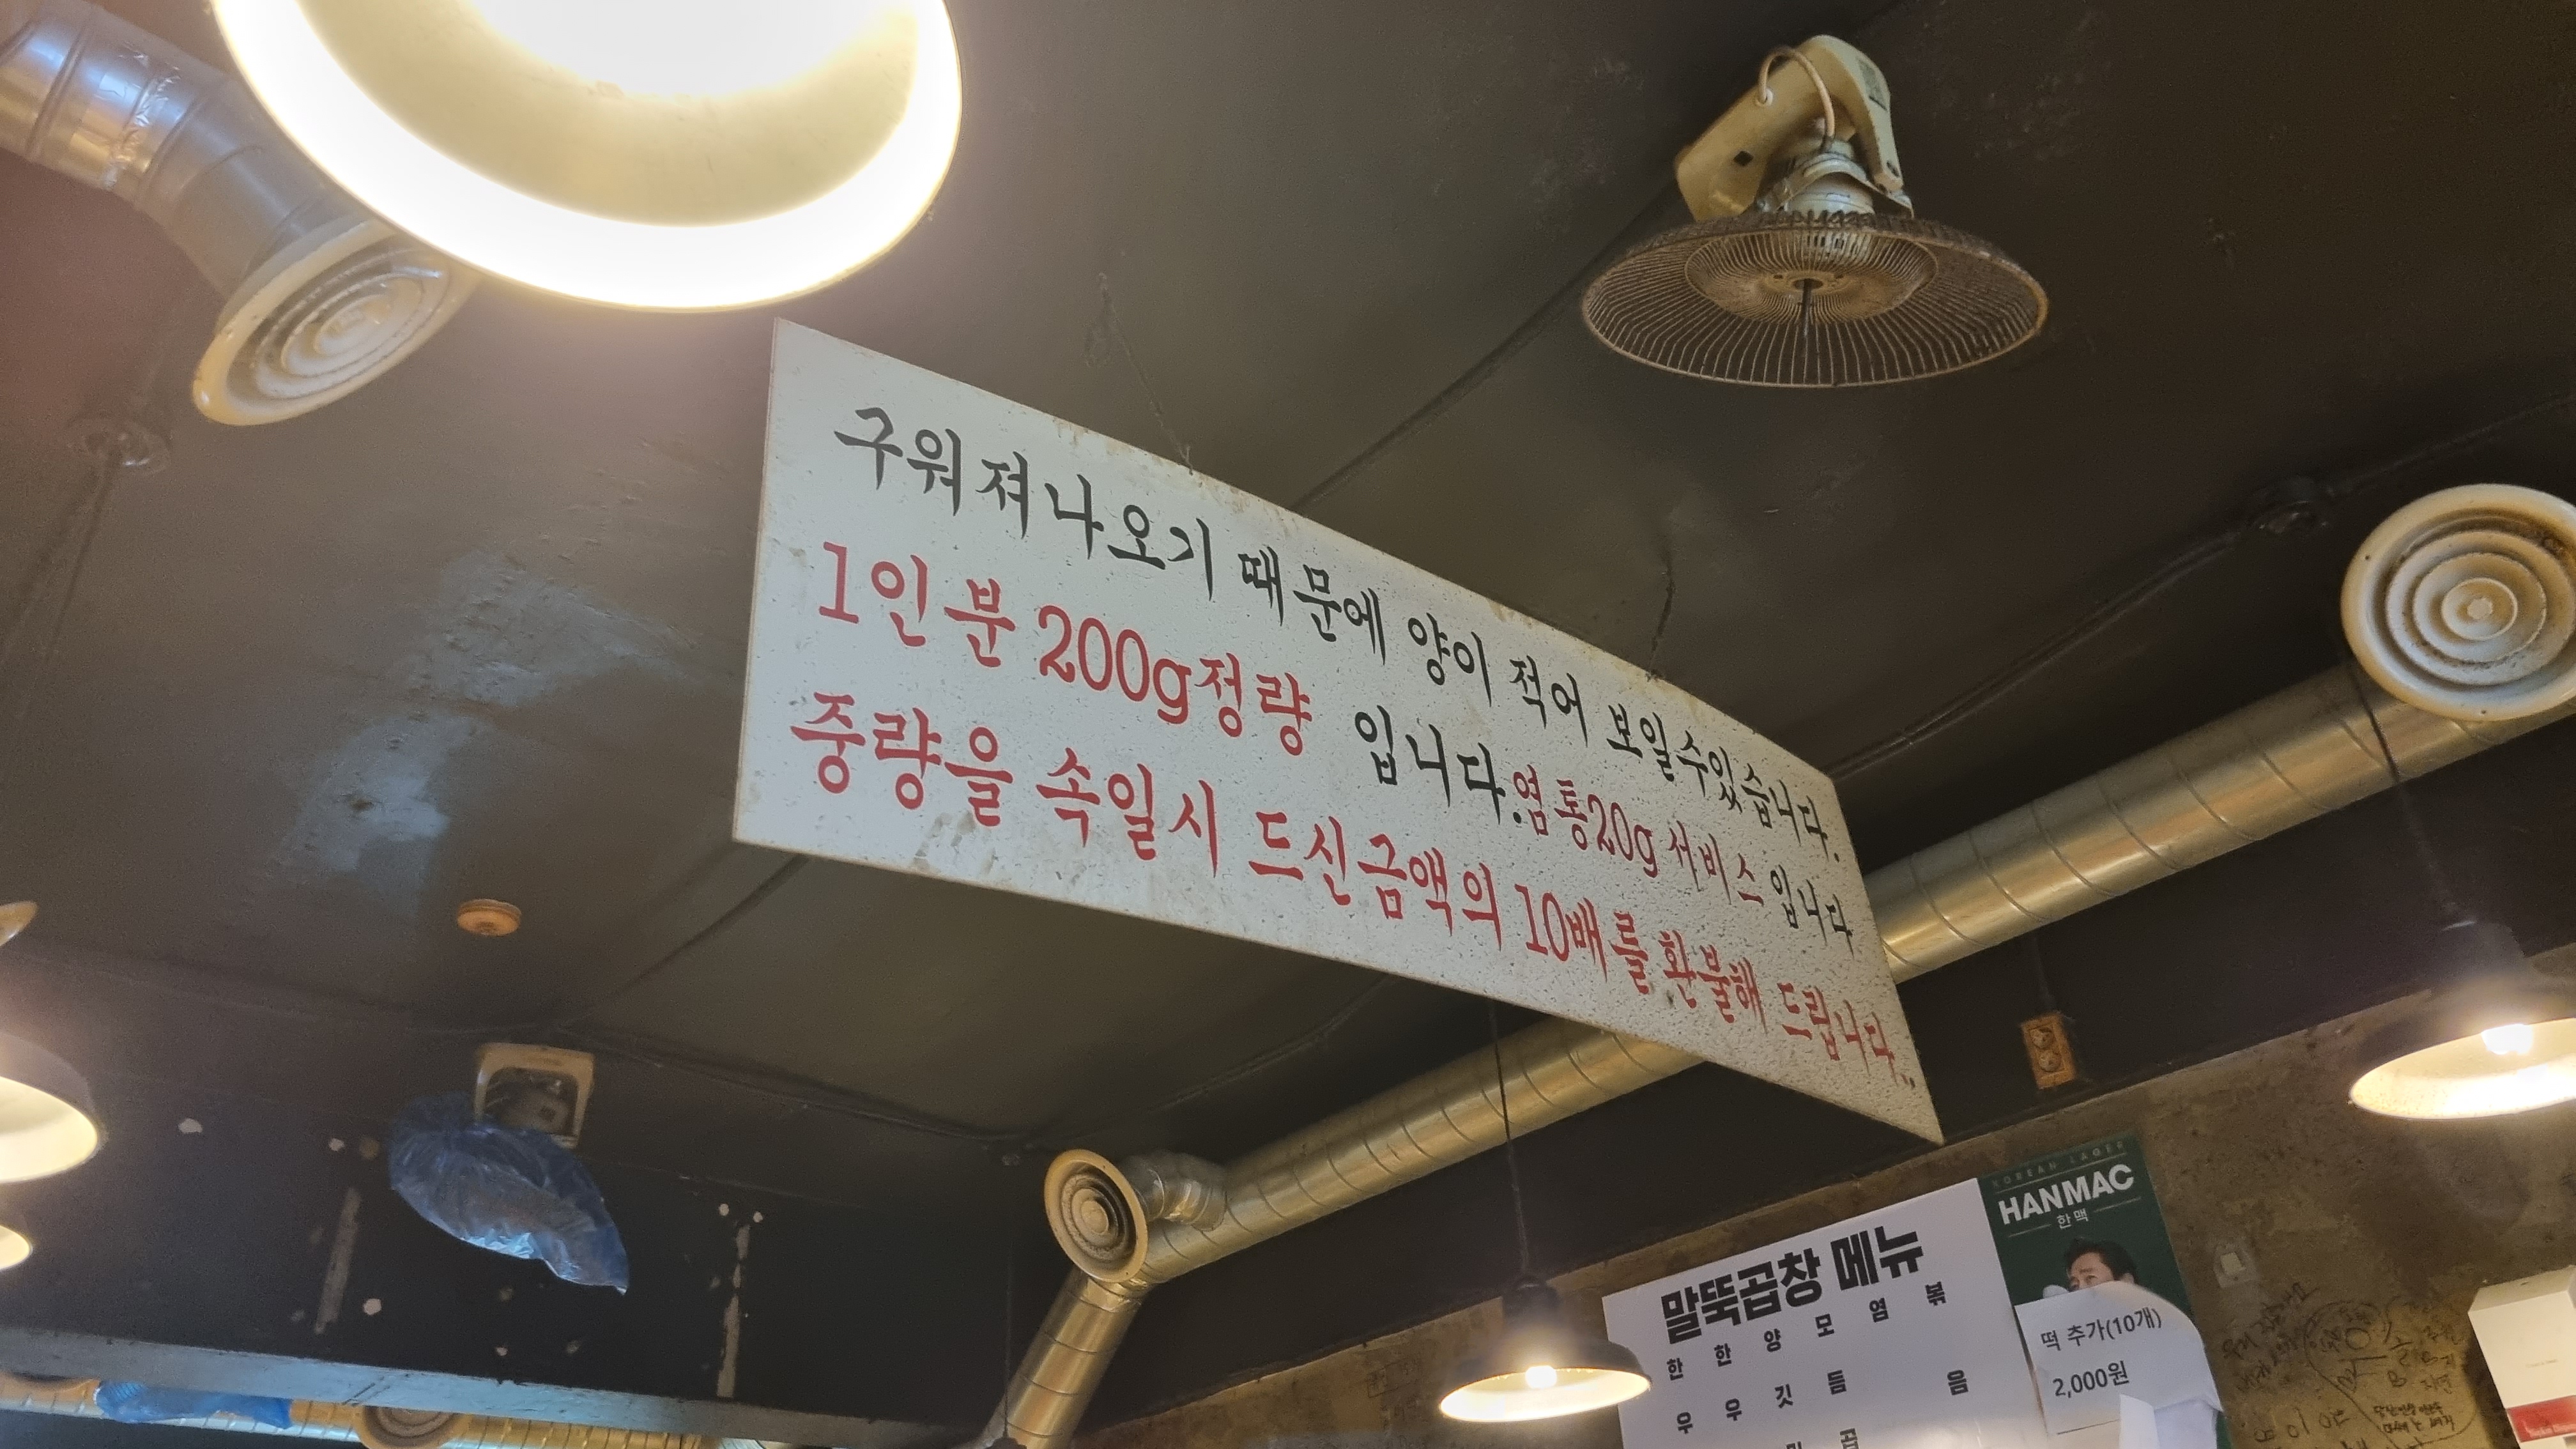 구워져나오기 때문에 양이 적어 보일수있습니다.
1인분 200g정량 입니다.염통20g 서비스 입니다
중량을 속일시 드신금액의 10배를 환불해 드립니다..
KOREAN LAGER
HANMAC
한맥
말뚝곱창 메뉴
한 한 양 모 염 볶
우 우 깃 듬 음
곱
떡 추가(10개)
2,000원